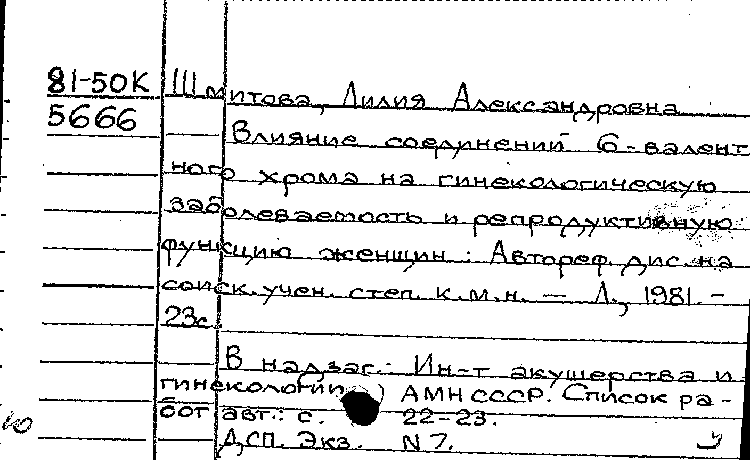 81-50К Шмитова, Лилия Александровна
5666 Влияние соединений 6-валент
ного хрома на гинекологическую
заболеваемость и репродуктивную
функцию женщин : Автореф. дис. на
соиск. учен. степ. к.м.н. — Л., 1981. –
23с.
В надзаг.: Ин-т акушерства и
гинекологии АМН СССР. Список ра-
бот авт.: с. 22-23.
ДСП. Экз. N 7.